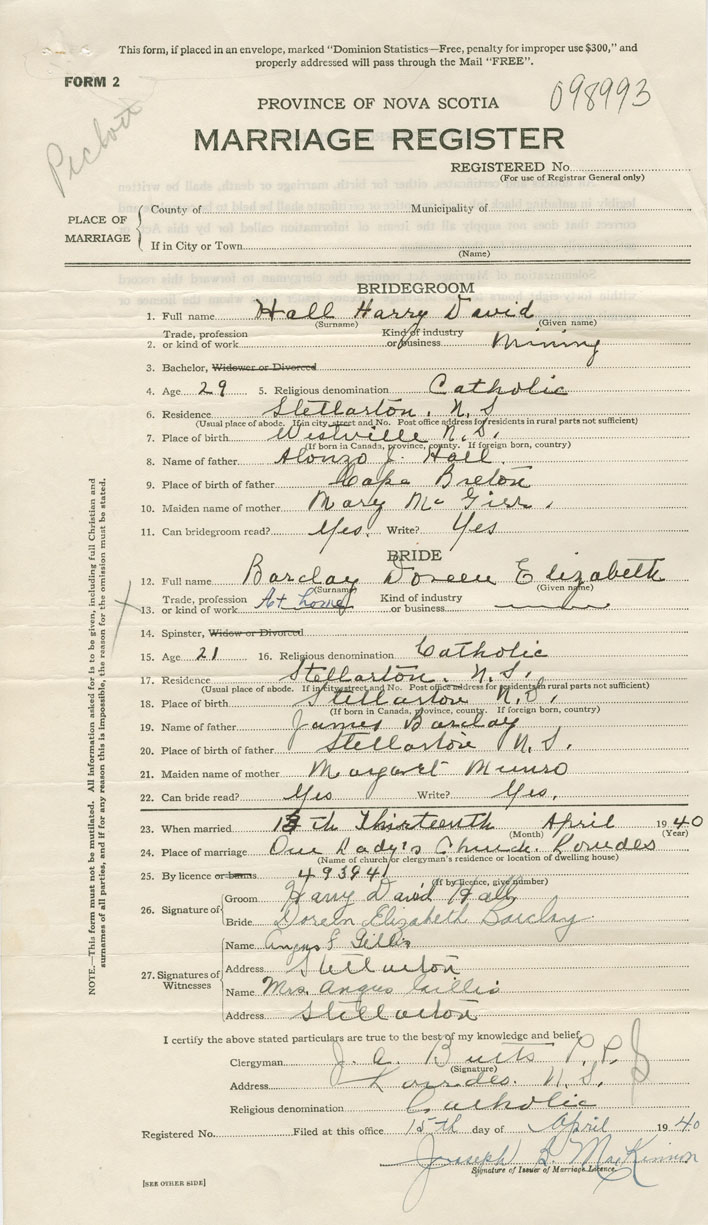 This form, if placed in an envelope, marked "Dominion Statistics—Free, penalty for improper use $300," and
properly addressed will pass through the Mail "FREE".
FORM 2
098993
PROVINCE OF NOVA SCOTIA
Pictou
MARRIAGE REGISTER
REGISTERED No.
(For use of Registrar General only)
PLACE OF MARRIAGE
County of Municipality of
If in City or Town
(Name)
BRIDEGROOM
1. Full name Hall Harry David
(Surname) (Given name)
2. Trade, profession or kind of work Kind of industry or business Mining
3. Bachelor, Widower or Divorced
4. Age 29 5. Religious denomination Catholic
6. Residence Stellarton. N.S.
(Usual place of abode. If in city street and No. Post office address for residents in rural parts not sufficient)
7. Place of birth Westville N.S.
(If born in Canada, province, county. If foreign born, country)
8. Name of father Alonzo J. Hall
9. Place of birth of father Cape Breton
10. Maiden name of mother Mary Mc
11. Can bridegroom read? Yes. Write? Yes
BRIDE
12. Full name Barclay Doreen Elizabeth
(Surname) (Given name)
13. Trade, profession or kind of work At home Kind of industry or business
14. Spinster, Widow or Divorced
15. Age 21 16. Religious denomination Catholic
17. Residence Stellarton. N.S.
(Usual place of abode. If in city street and No. Post office address for residents in rural parts not sufficient)
18. Place of birth Stellarton N.S.
(If born in Canada, province, county. If foreign born, country)
19. Name of father James Barclay
20. Place of birth of father Stellarton N.S.
21. Maiden name of mother Margaret Munro
22. Can bride read? Yes Write? Yes.
23. When married 13th Thirteenth April 1940
(Month) (Year)
24. Place of marriage Our Lady's Church. Lourdes
(Name of church or clergyman's residence or location of dwelling house)
25. By licence or banns 493941
(If by licence, give number)
26. Signature of
Groom Harry David Hall
Bride Doreen Elizabeth Barclay
27. Signatures of Witnesses
Name Angus J Gillis
Address Stellarton
Name Mrs. Angus Gillis
Address Stellarton
I certify the above stated particulars are true to the best of my knowledge and belief.
Clergyman J. A. Butts P.P.
(Signature)
Address Lourdes. N.S.
Religious denomination Catholic
Registered No. Filed at this office 15th day of April 1940
Joseph B. MacKinnon
Signature of Issuer of Marriage Licence.
[SEE OTHER SIDE]
NOTE.—This form must not be mutilated. All information asked for is to be given, including full Christian and
surnames of all parties, and if for any reason this is impossible, the reason for the omission must be stated.